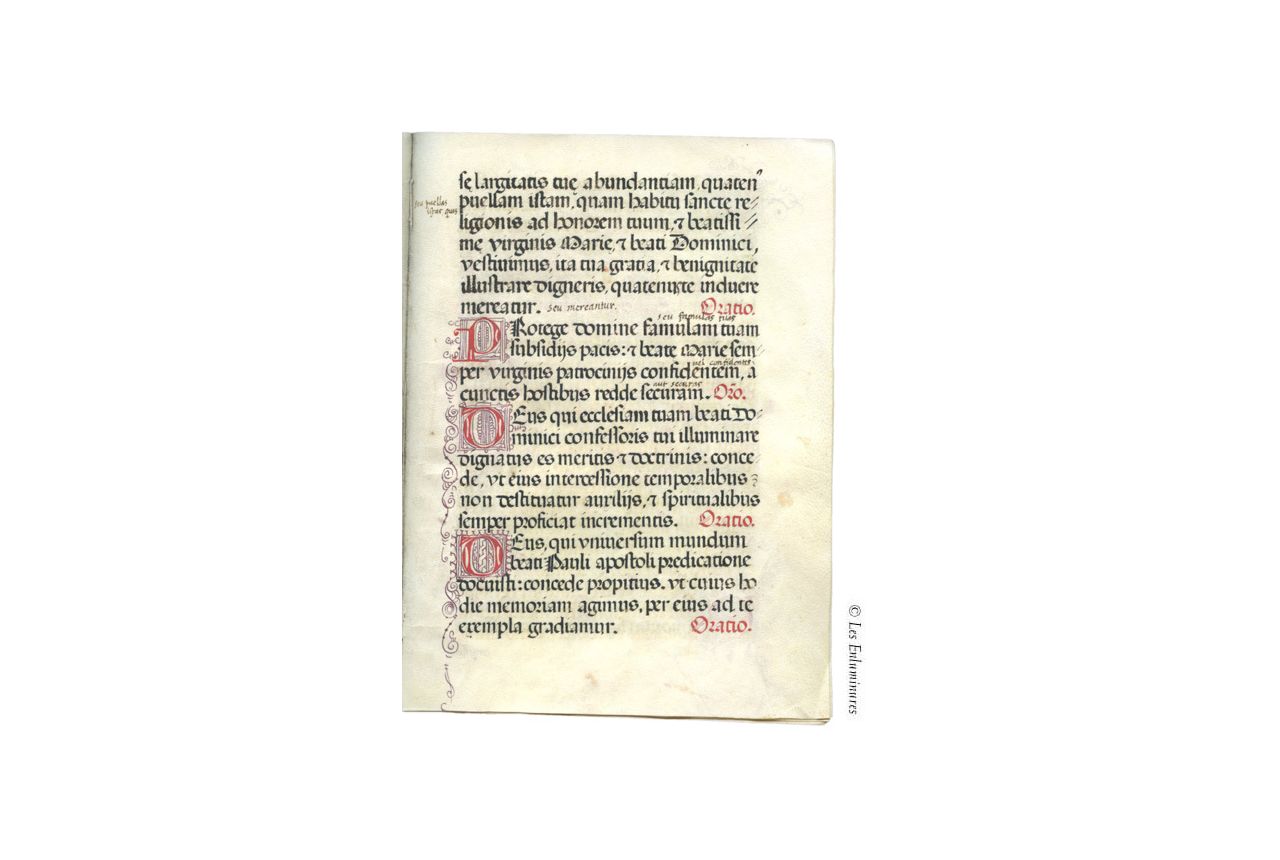 sę largitatis tuę abundantiam, quaten⁹
seu puellas
istas quas
puellam istam, quam habitu sancte re⸗
ligionis ad honorem tuum, ⁊ beatissi⸗
me virginis Marie, ⁊ beati Dominici,
vestiuimus, ita tua gratia, ⁊ benignitate
illustrare digneris, quatenus te induere
mereatur. seu mereantur. Oratio.
seu famulas tuas
PRotege domine famulam tuam
subsidijs pacis: ⁊ beate Marie sem⸗
vel confidentes
per virginis patrocinijs confidentem, a
aut securas
cunctis hostibus redde securam. Orõ.
DEus qui ecclesiam tuam beati Do⸗
minici confessoris tui illuminare
dignatus es meritis ⁊ doctrinis: conce
de, vt eius intercessione temporalibus
non destituatur auxilijs, ⁊ spiritualibus
semper proficiat incrementis. Oratio.
DEus, qui vniuersum mundum
beati Pauli apostoli predicatione
docuisti: concede propitius. vt cuius ho
die memoriam agimus, per eius ad te
exempla gradiamur. Oratio.
© Les Enluminures